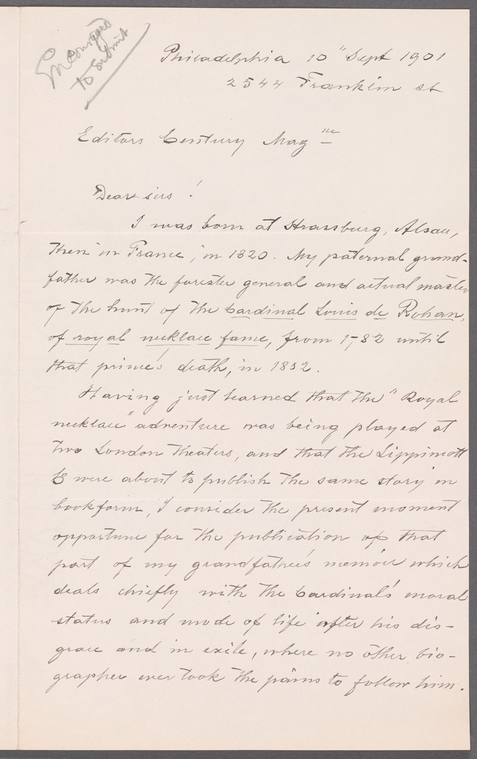 Encouraged
to submit
Philadelphia 10" Sept 1901
2544 Franklin st
Editors Century Mag ne
Dear sirs!
I was born at Strassburg, Alsau,
then in France, in 1820. My paternal grand-
father was the forester general and actual master
of the hunt of the Cardinal Louis de Rohan,
of royal necklace fame, from 1782 until
that prince's death, in 1832.
Having just learned that the "Royal
necklace" adventure was being played at
two London theaters, and that the Lippincott
Co were about to publish the same story in
bookform, I consider the present moment
opportune for the publication of that
part of my grandfather's memoir which
deals chiefly with the Cardinal's moral
status and mode of life after his dis-
grace and in exile, where no other bio-
grapher ever took the pains to follow him.